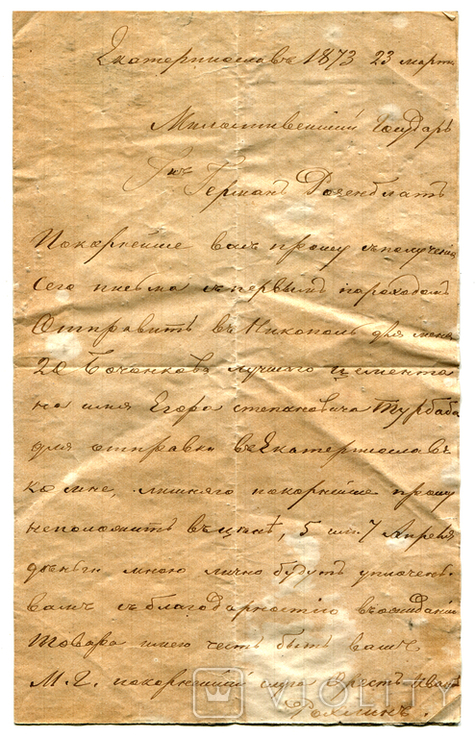 Екатеринославъ 1873 23 марта
Милостивейший Государь
Гнъ Германъ Розенблатъ
Покорнейше васъ прошу съполучения
Сего письма съпервымъ пароходомъ
Отправить въ Никополь для меня
20 Бочонковъ лучшаго цемента
на имя Егора степановича Турбаба
для отправки въ Екатеринославъ
ко мне, лишняго покорнейше прошу
неположить въ ценѣ, 5 или 7 Апреля
деньги мною лично будутъ уплочены
вамъ съблагодарностию въожидании
товара имею честь быть вашъ
М. Г. покорнейший слуга
VIOLITY